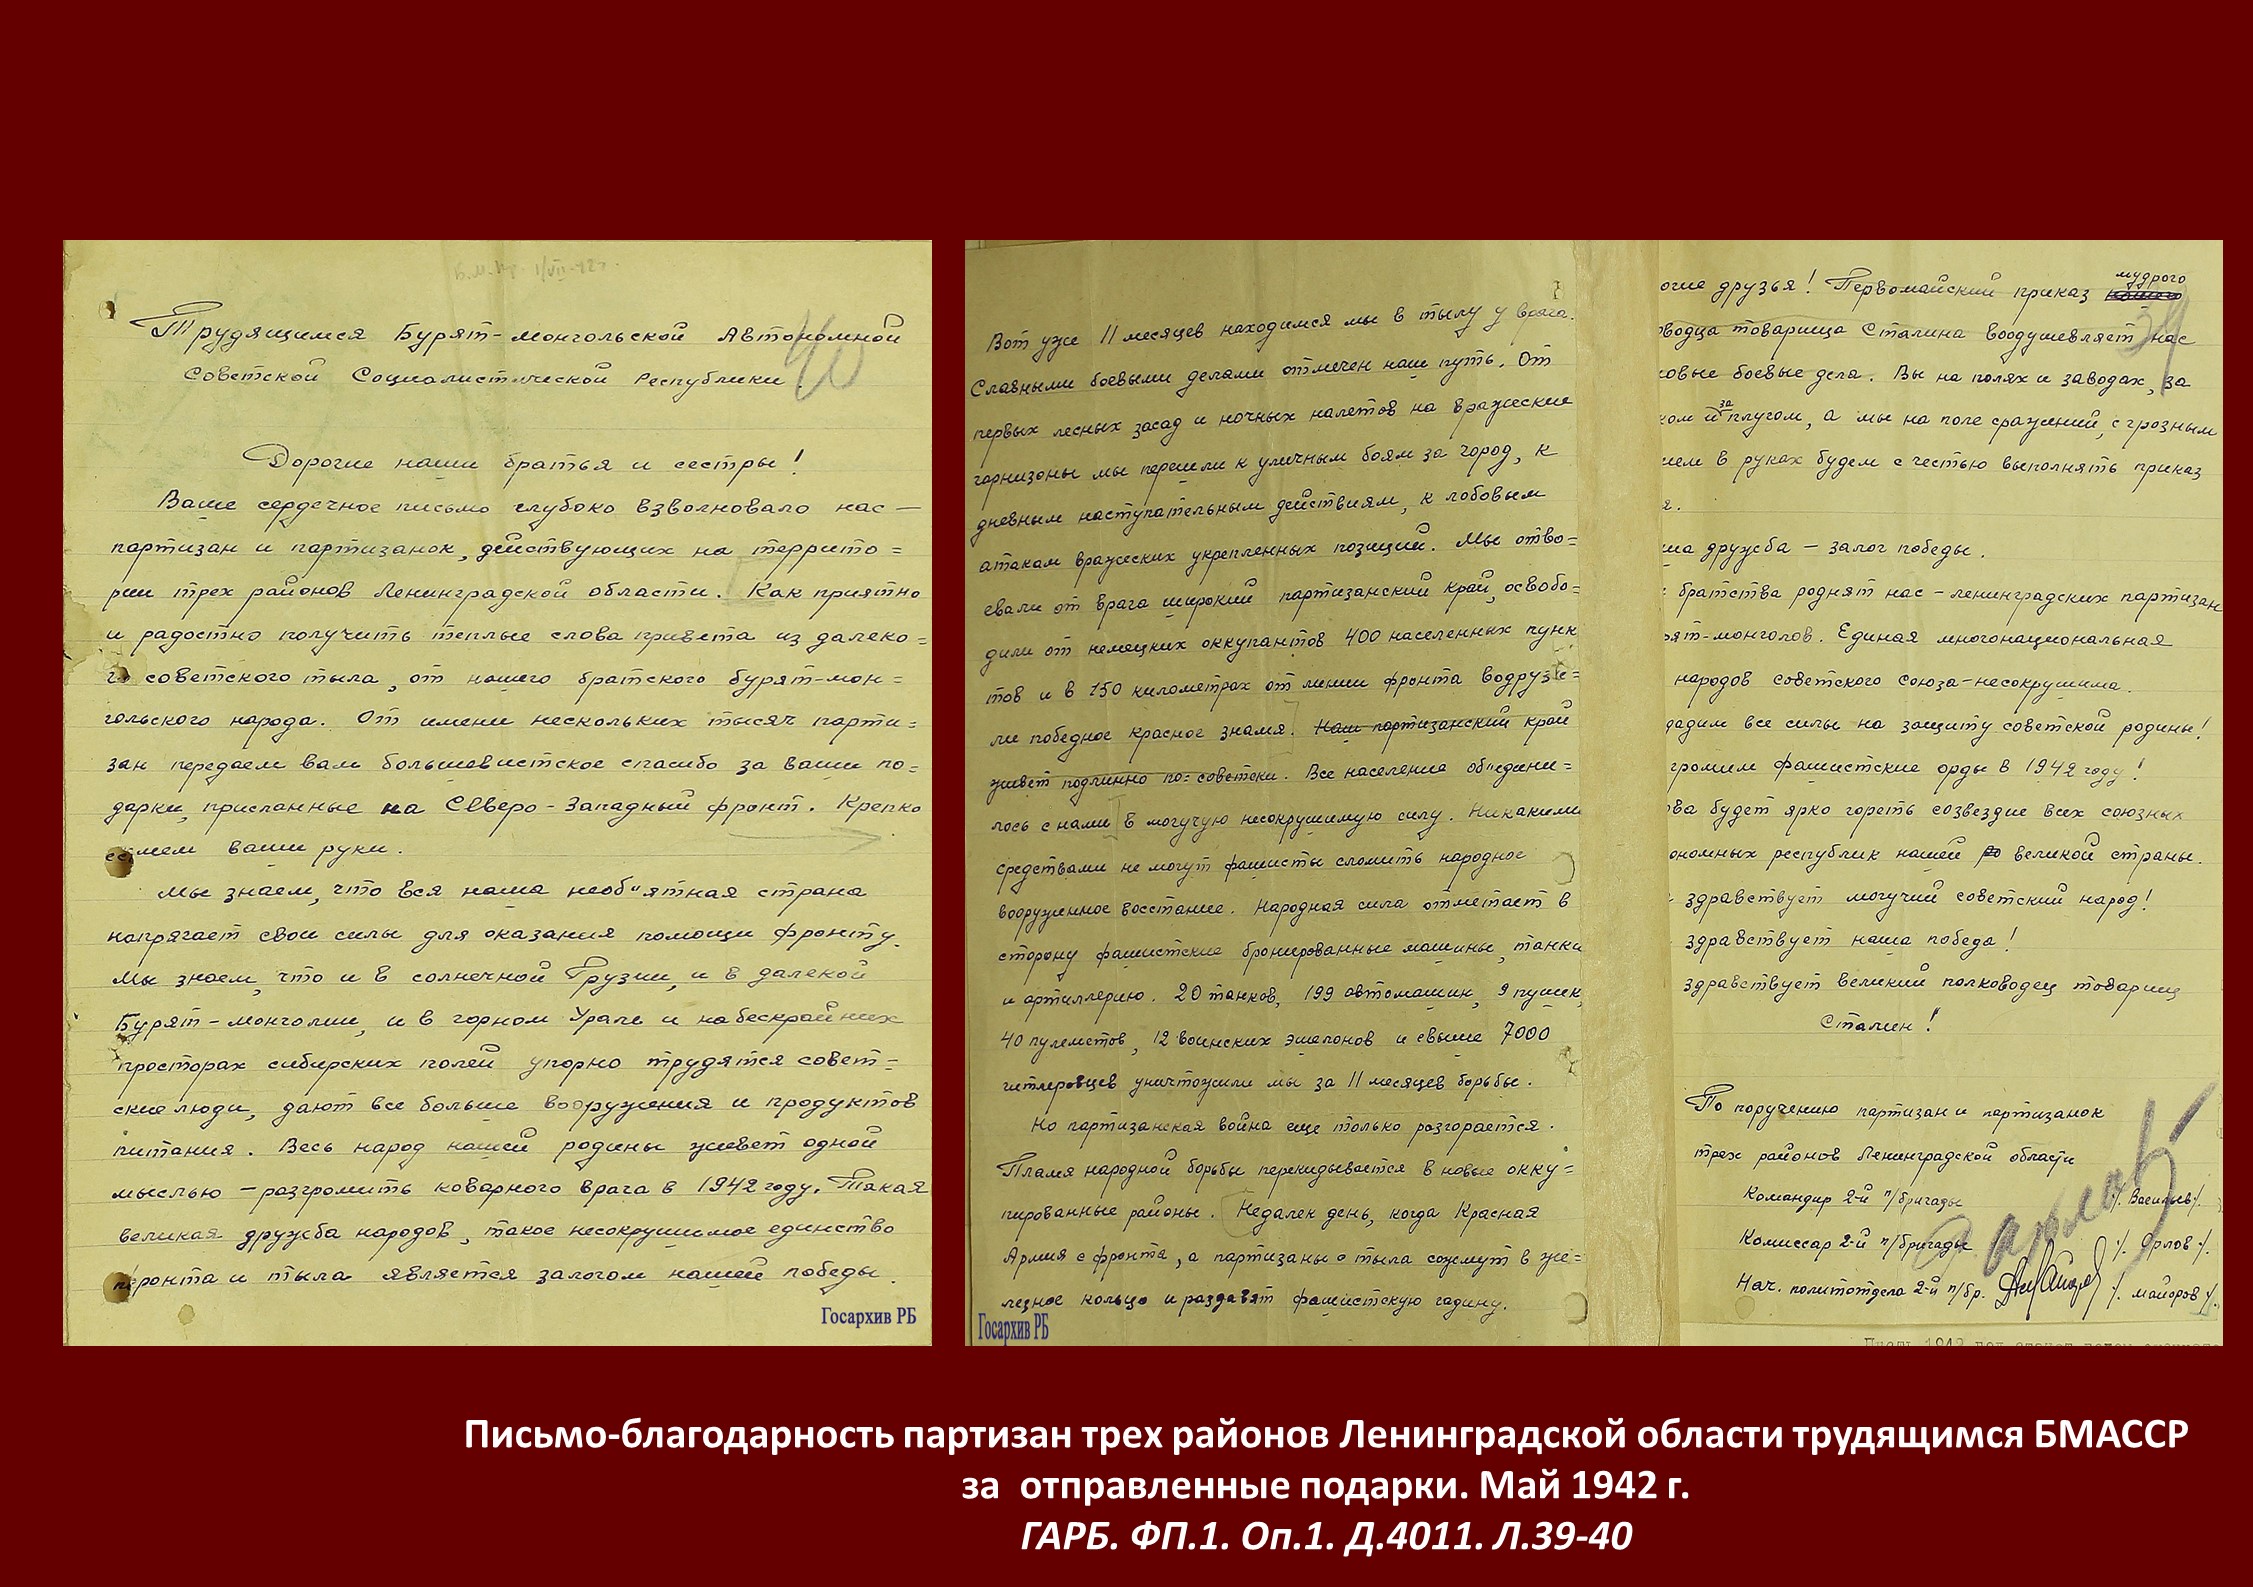 Трудящимся Бурят-монгольской Автономной
Советской Социалистической Республики.
40
Дорогие наши братья и сестры!
Ваше сердечное письмо глубоко взволновало нас —
партизан и партизанок, действующих на террито=
рии трех районов Ленинградской области. Как приятно
и радостно получить теплые слова привета из далеко=
го советского тыла, от нашего братского бурят-мон=
гольского народа. От имени нескольких тысяч парти=
зан передаем вам большевистское спасибо за ваши по=
дарки, присланные на Северо-Западный фронт. Крепко
жмем ваши руки.
Мы знаем, что вся наша необ"ятная страна
напрягает свои силы для оказания помощи фронту.
Мы знаем, что и в солнечной Грузии, и в далекой
Бурят-монголии, и в горном Урале и на бескрайних
просторах сибирских полей упорно трудятся совет=
ские люди, дают все больше вооружения и продуктов
питания. Весь народ нашей родины живет одной
мыслью — разгромить коварного врага в 1942 году. Такая
великая дружба народов, такое несокрушимое единство
фронта и тыла является залогом нашей победы.
Госархив РБ
Вот уже 11 месяцев находимся мы в тылу у врага.
Славными боевыми делами отмечен наш путь. От
первых лесных засад и ночных налетов на вражеские
гарнизоны мы перешли к уличным боям за город, к
дневным наступательным действиям, к лобовым
атакам вражеских укрепленных позиций. Мы отво=
евали от врага широкий партизанский край, освобо=
дили от немецких оккупантов 400 населенных пунк
тов и в 150 километрах от линии фронта водрузи=
ли победное красное знамя. Наш партизанский край
живет подлинно по-советски. Все население об"едини=
лось с нами в могучую несокрушимую силу. Никакими
средствами не могут фашисты сломить народное
вооруженное восстание. Народная сила отметает в
сторону фашистские бронированные машины, танки
и артиллерию. 20 танков, 199 автомашин, 9 пушек,
40 пулеметов, 12 воинских эшелонов и свыше 7000
гитлеровцев уничтожили мы за 11 месяцев борьбы.
Но партизанская война еще только разгорается.
Пламя народной борьбы перекидывается в новые окку=
пированные районы. Недалек день, когда Красная
Армия с фронта, а партизаны с тыла сожмут в же=
лезное кольцо и раздавят фашистскую гадину.
Госархив РБ
мудрого
огие друзья! Первомайский приказ нашего
39
водца товарища Сталина воодушевляет нас
овые боевые дела. Вы на полях и заводах, за
за
ком и плугом, а мы на поле сражений, с грозным
ием в руках будем с честью выполнять приказ
я.
ша дружба — залог победы.
братства роднят нас — ленинградских партизан
рят-монголов. Единая многонациональная
народов советского союза — несокрушима.
дадим все силы на защиту советской родины!
громим фашистские орды в 1942 году!
ова будет ярко гореть созвездие всех союзных
ономных республик нашей великой страны.
здравствует могучий советский народ!
здравствует наша победа!
здравствует великий полководец товарищ
Сталин!
По поручению партизан и партизанок
трех районов Ленинградской области
Командир 2-й п/бригады /. Васильев/.
Комиссар 2-й п/бригады /. Орлов /.
Нач. политотдела 2-й п/бр. /. майоров /.
Письмо-благодарность партизан трех районов Ленинградской области трудящимся БМАССР
за отправленные подарки. Май 1942 г.
ГАРБ. ФП.1. Оп.1. Д.4011. Л.39-40